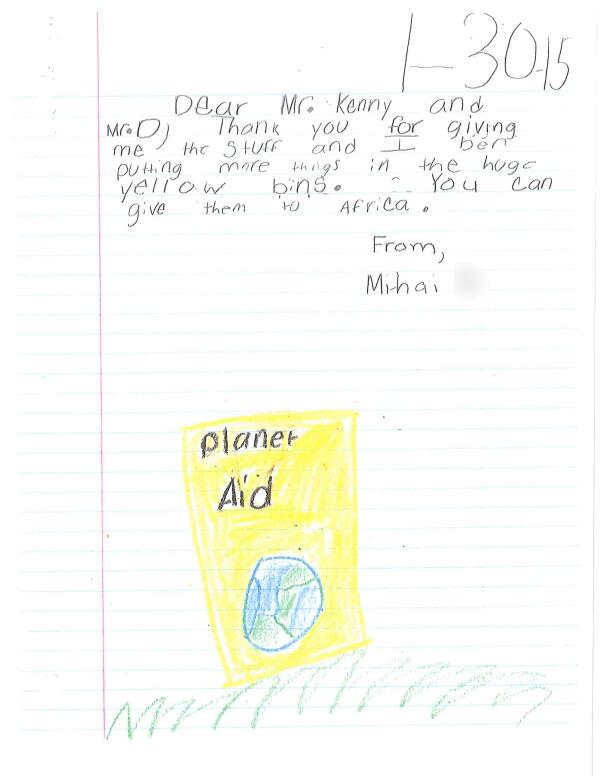 1-30-15
Dear Mr. Kenny and
Mr. D, Thank you for giving
me, the stuff and I ben
putting more things in the huge
yellow bins. You can
give them to Africa.
From,
Mihai
planet
Aid